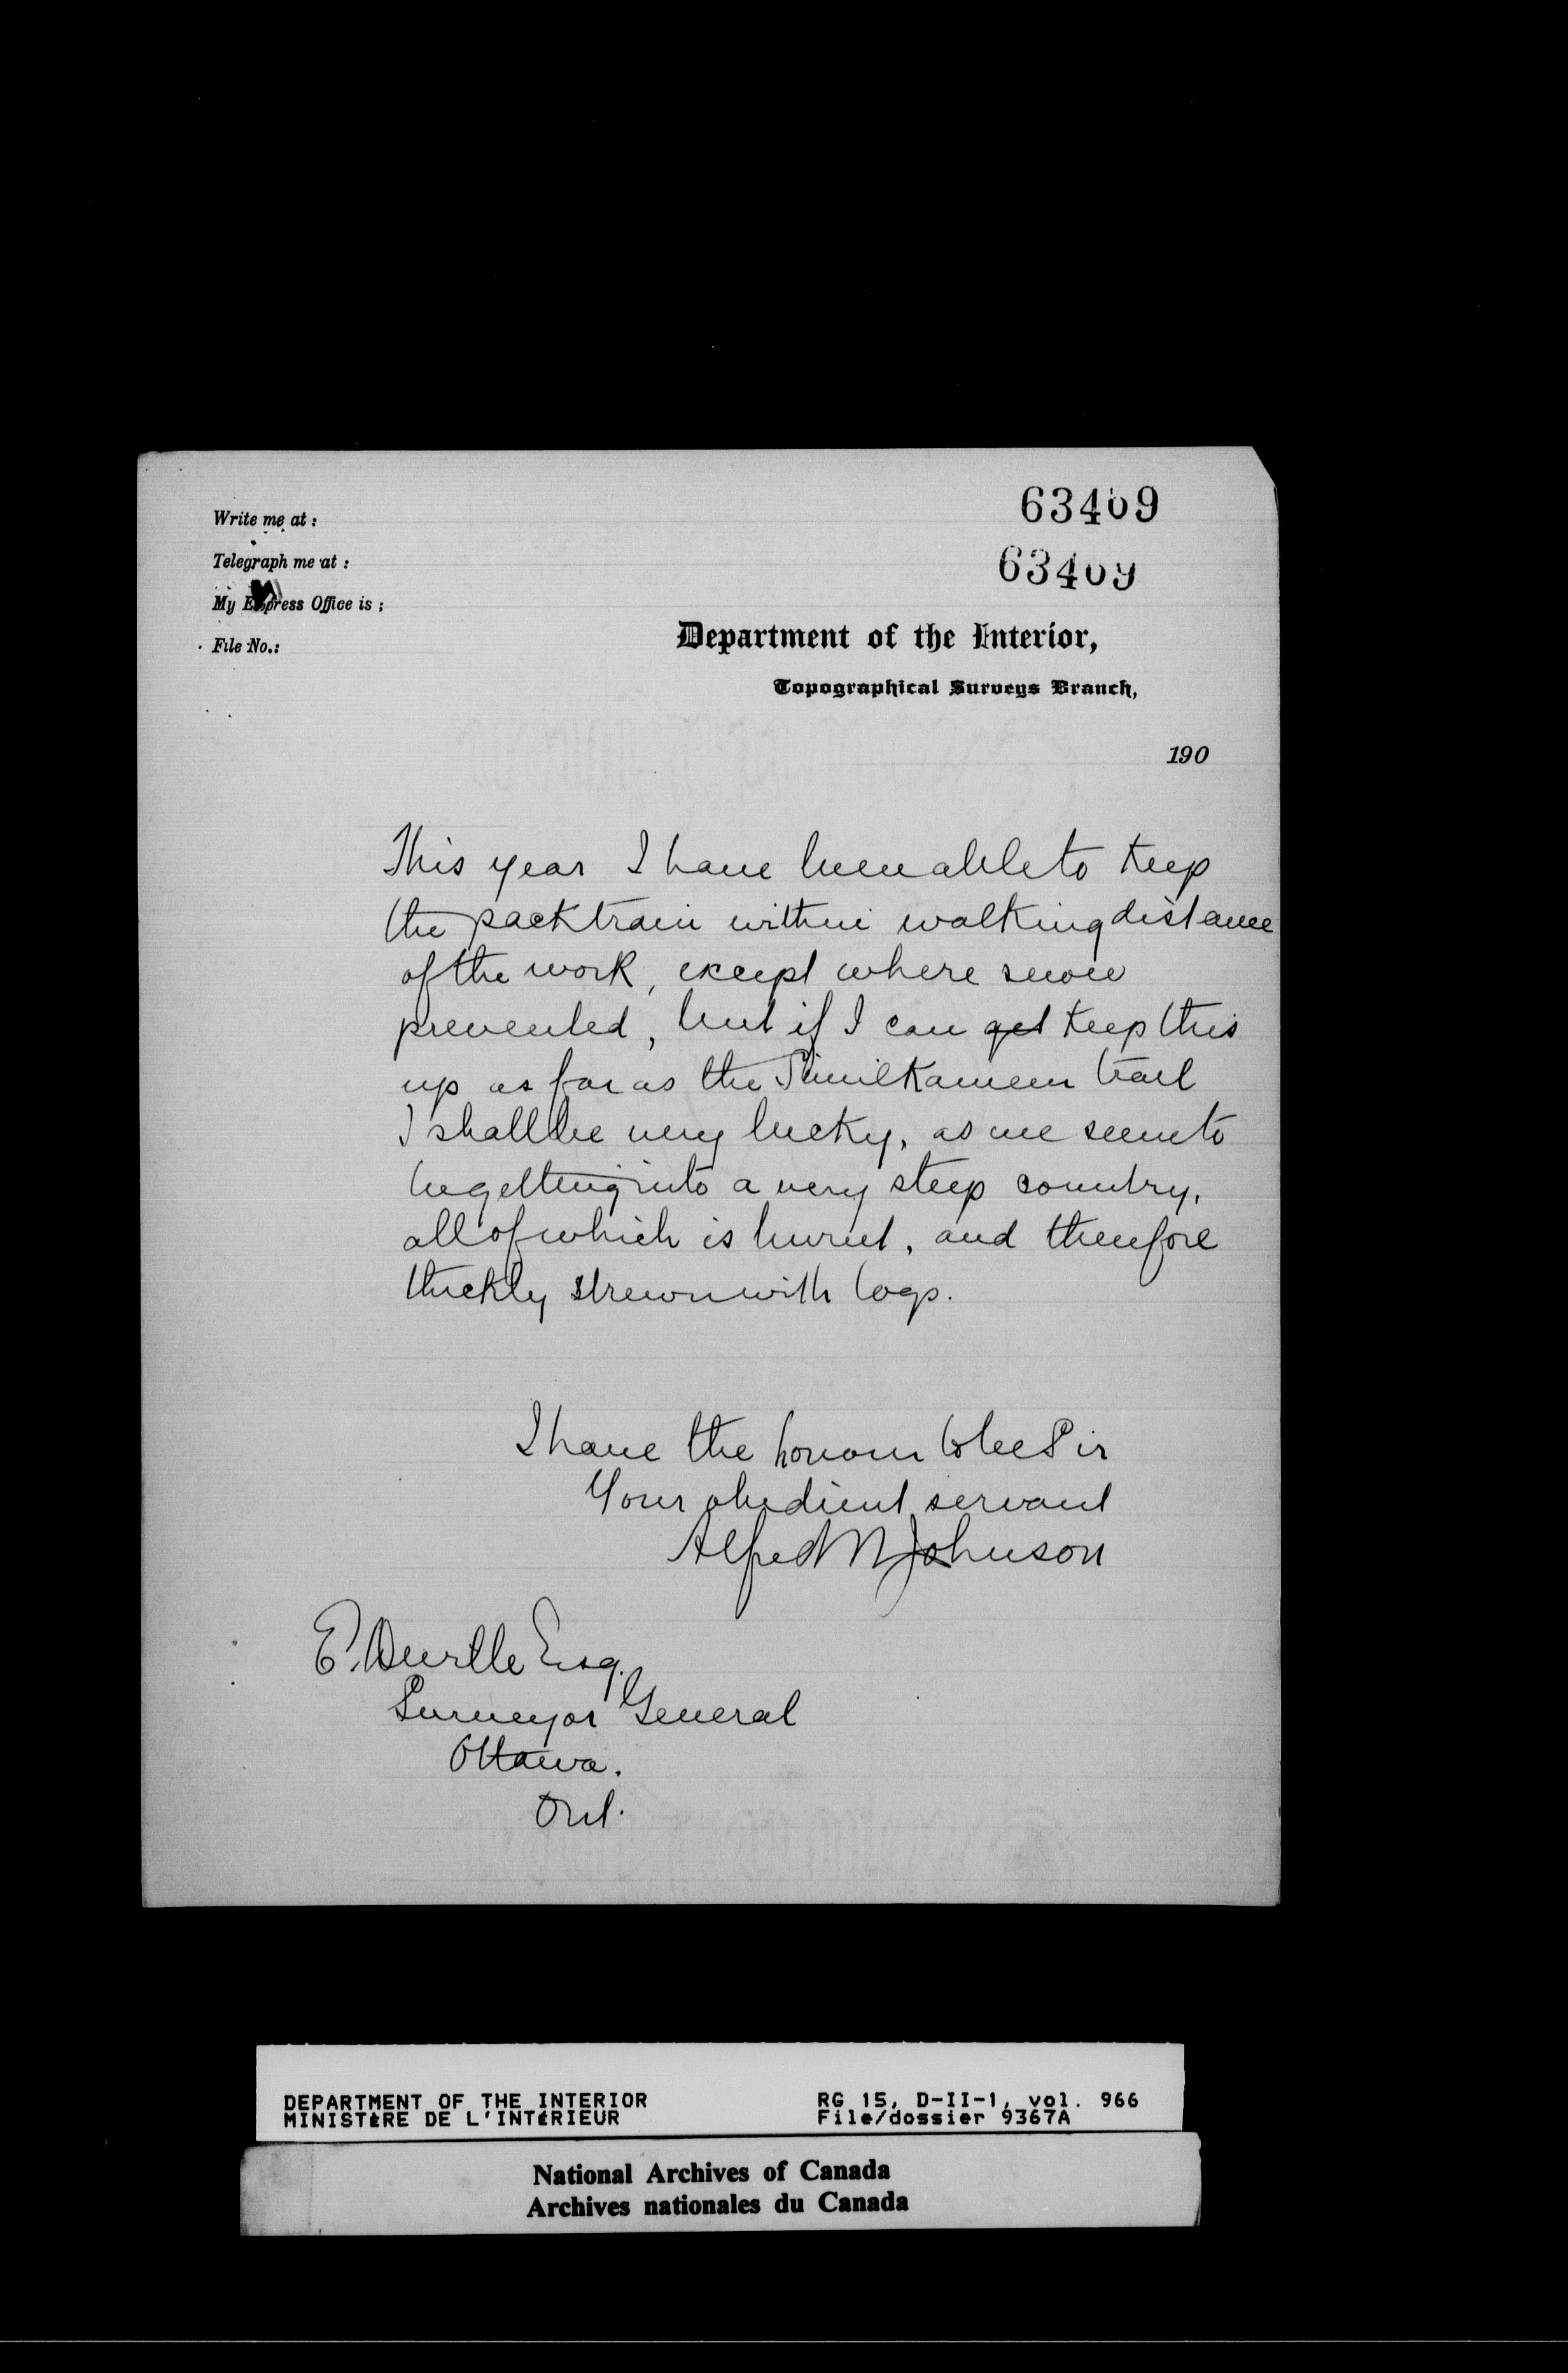 63409
63409
Write me at :
Telegraph me at :
My Express Office is ;
File No.:
Department of the Interior,
Topographical Surveys Branch,
190
This year I have been able to keep
the packtrain within walking distance
of the work, except where snow
prevented, but if I can get keep this
up as far as the Similkameen trail
I shall be very lucky, as we seem to
be getting into a very steep country,
all of which is burnt, and therefore
thickly strewn with logs.
I have the honour to be Sir
Your obedient servant
Alfred Johnson
E. Esq.
Surveyor General
Ottawa.
Ont.
DEPARTMENT OF THE INTERIOR
MINISTÈRE DE L'INTÉRIEUR
RG 15, D-II-1, vol. 966
File/dossier 9367A
National Archives of Canada
Archives nationales du Canada